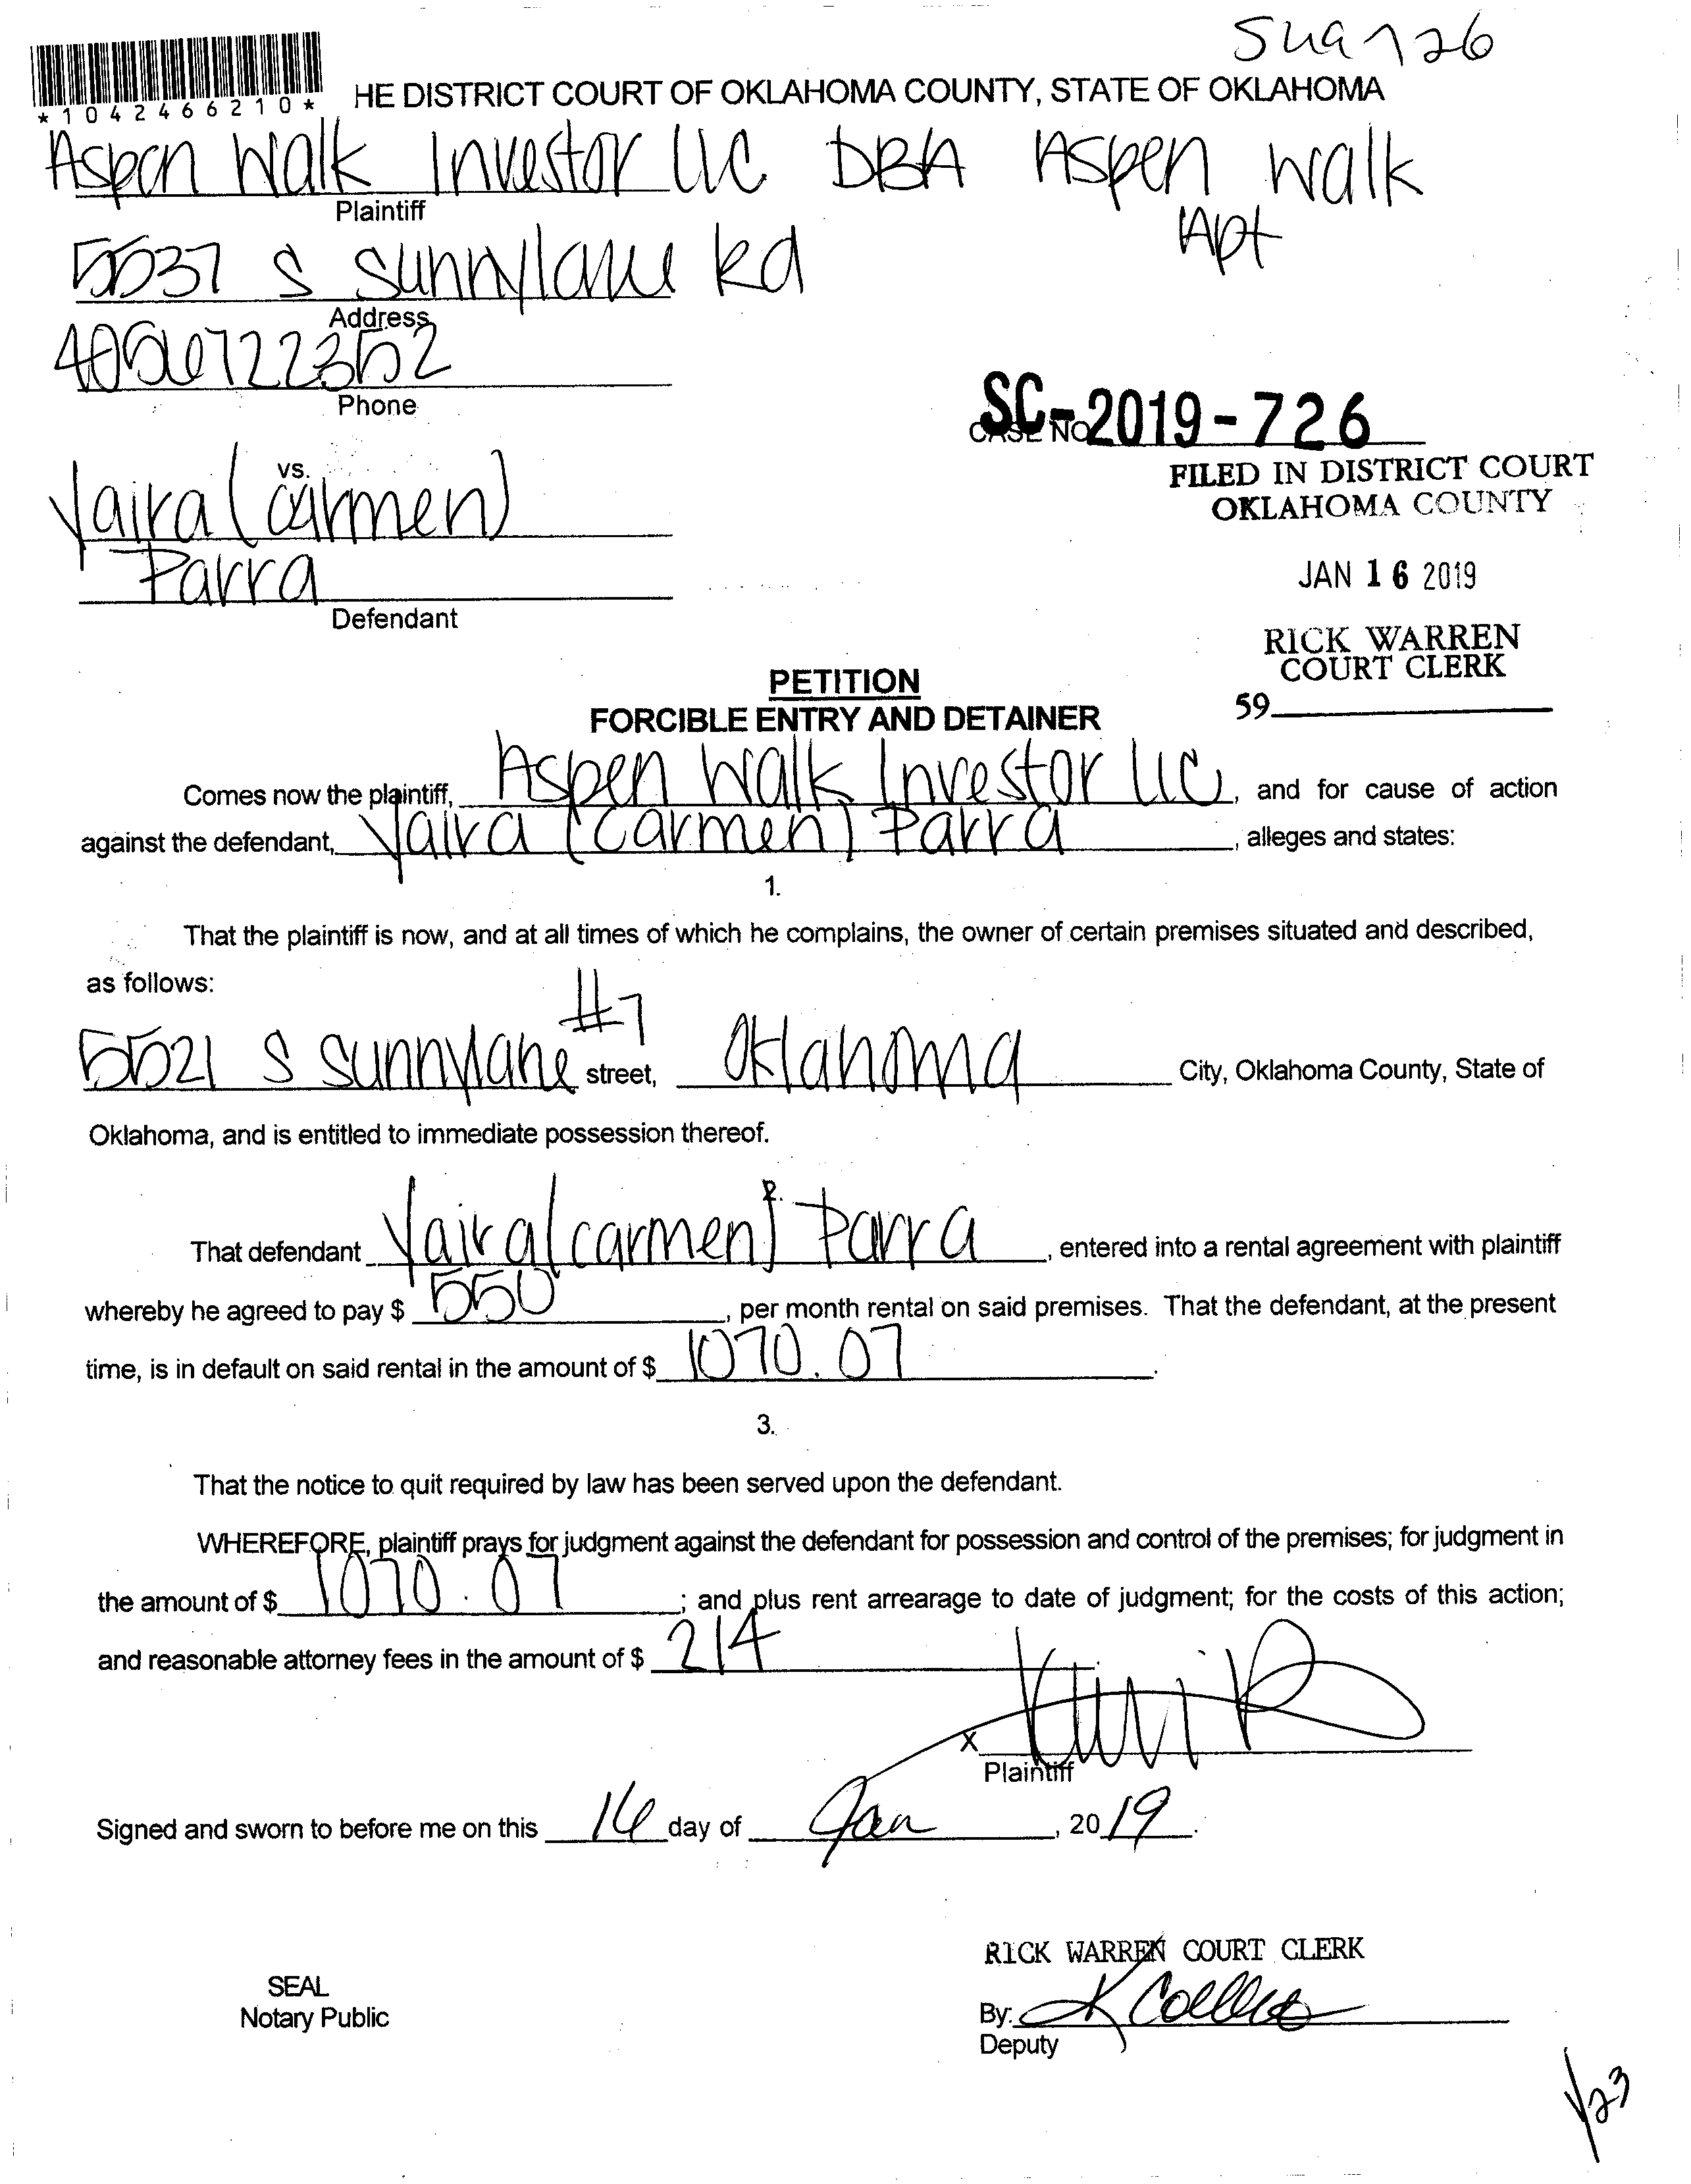 SUG726
*1042466210*
HE DISTRICT COURT OF OKLAHOMA COUNTY, STATE OF OKLAHOMA
Aspen Walk Investor LLC DBA Aspen Walk
Apt
Plaintiff
5537 S Sunnylane Rd
Address
4056722352
Phone
SC-2019-726
CASE NO
vs.
Yaira (carmen)
Parra
Defendant
FILED IN DISTRICT COURT
OKLAHOMA COUNTY
JAN 16 2019
RICK WARREN
COURT CLERK
59
PETITION
FORCIBLE ENTRY AND DETAINER
Comes now the plaintiff, Aspen Walk Investor LLC, and for cause of action
against the defendant, Yaira (Carmen) Parra, alleges and states:
1.
That the plaintiff is now, and at all times of which he complains, the owner of certain premises situated and described,
as follows:
#7
5521 S Sunnylane street, Oklahoma City, Oklahoma County, State of
Oklahoma, and is entitled to immediate possession thereof.
2.
That defendant Yaira (carmen) Parra, entered into a rental agreement with plaintiff
whereby he agreed to pay $ 550, per month rental on said premises. That the defendant, at the present
time, is in default on said rental in the amount of $ 1070.07.
3.
That the notice to quit required by law has been served upon the defendant.
WHEREFORE, plaintiff prays for judgment against the defendant for possession and control of the premises; for judgment in
the amount of $ 1070.07; and plus rent arrearage to date of judgment; for the costs of this action;
and reasonable attorney fees in the amount of $ 214
X
Plaintiff
Signed and sworn to before me on this 16 day of Jan, 2019.
RICK WARREN COURT CLERK
SEAL
Notary Public
By:
Deputy
1/23